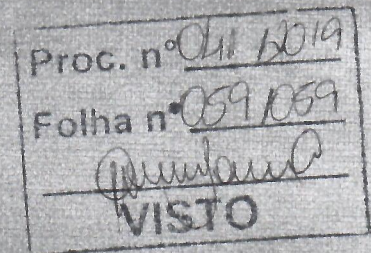 Proc. nº 041/2019
Folha nº 059/059
VISTO